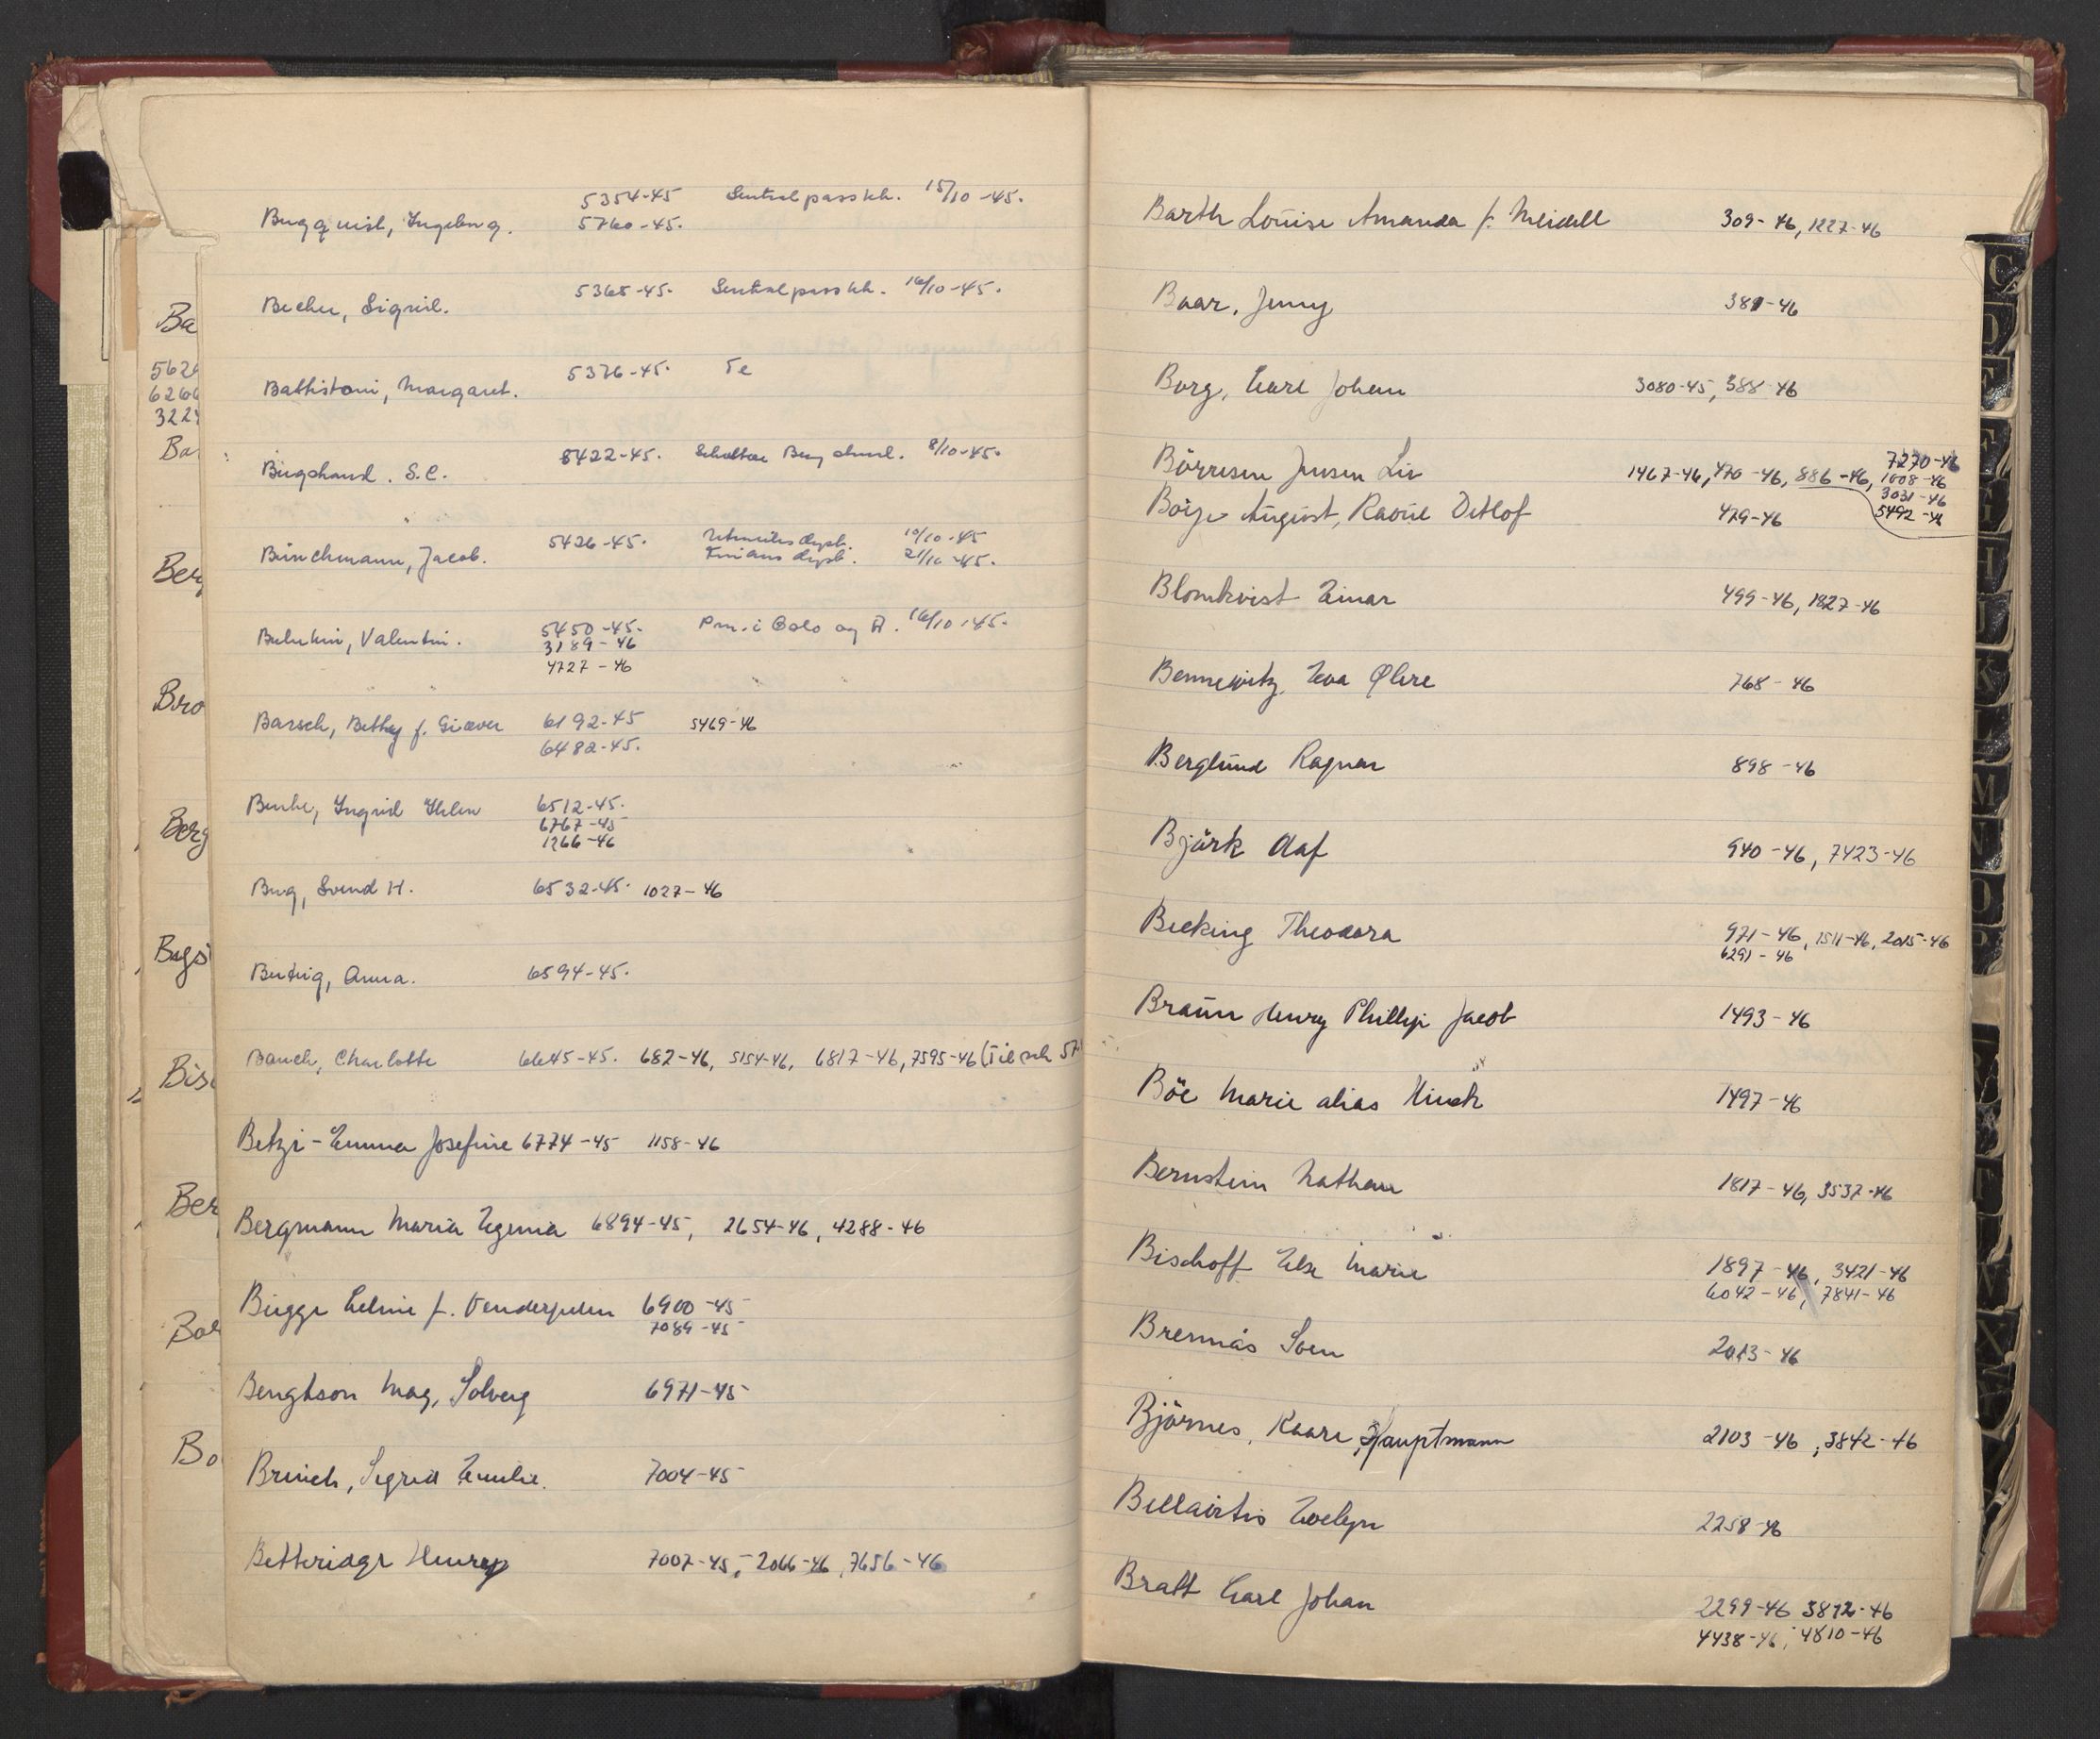 5354-45 Sentralpassktr. 15/10-45.
Bergquist, Ingeborg. 5760-45.
Becher, Sigrid. 5365-45. Sentralpassktr. 16/10-45.
Battistoni, Margaret. 5376-45. Te
Bergstrand. S.C. 5422-45. 8/10-45.
Brinchmann, Jacob. 5426-45. Utenriksdept. 10/10-45
Finansdept. 21/10-45.
Belukin, Valentin. 5450-45. Pm. i Oslo og A. 16/10-45.
3189-46
4727-46
Barsch, Betty f. Giæver 6192-45 5469-46
6482-45.
Benke, Ingrid Ihlen 6512-45.
6767-45
1266-46
Berg, Svend H. 6532-45. 1027-46
Anna. 6594-45.
Bauch, Charlotte 6645-45. 682-46, 5154-46, 6817-46, 7595-46
Betzi-Emma Josefine 6774-45 1158-46
Bergmann Maria Egenia 6894-45, 2654-46, 4288-46
Bugge f. 6900-45
7089-45
Bengtson May, Solveig 6971-45
Brinch, Sigrid Emilie. 7004-45
Betteridge Henry 7007-45, 2066-46, 7656-46
Ba
562
626
322
Ba
Ber
Bro
Berg
Bags
Bis
Ber
Bor
Bo
Barth Louise Amanda f. Meidell 309-46, 1227-46
Baar, Jenny 381-46
Borg, Carl Johan 3080-45, 388-46
7270-46
Börresen Jensen Liv 1467-46, 470-46, 886-46, 1008-46
3031-46
August, Raoul Detlof 479-46 5492-46
Blomkvist Einar 499-46, 1827-46
Bennewitz, Eva Ølire 768-46
Berglund Ragnar 898-46
Björk Olaf 940-46, 7423-46
Becking Theodora 971-46, 1511-46, 2015-46
6291-46
Braun Henry Phillip Jacob 1493-46
Böe Marie alias Hinck 1497-46
Bernstein Nathan 1817-46, 3537-46
Bischoff Else Marie 1897-46, 3421-46
6042-46, 7841-46
Brennäs Sven 2013-46
Björnes, Kaare, Hauptmann 2103-46, 3842-46
Bellairtis Evelyn 2258-46
Bratt Carl Johan 2299-46 3892-46
4438-46, 4810-46
C
D
E
F
H
I
J
K
L
M
N
O
P